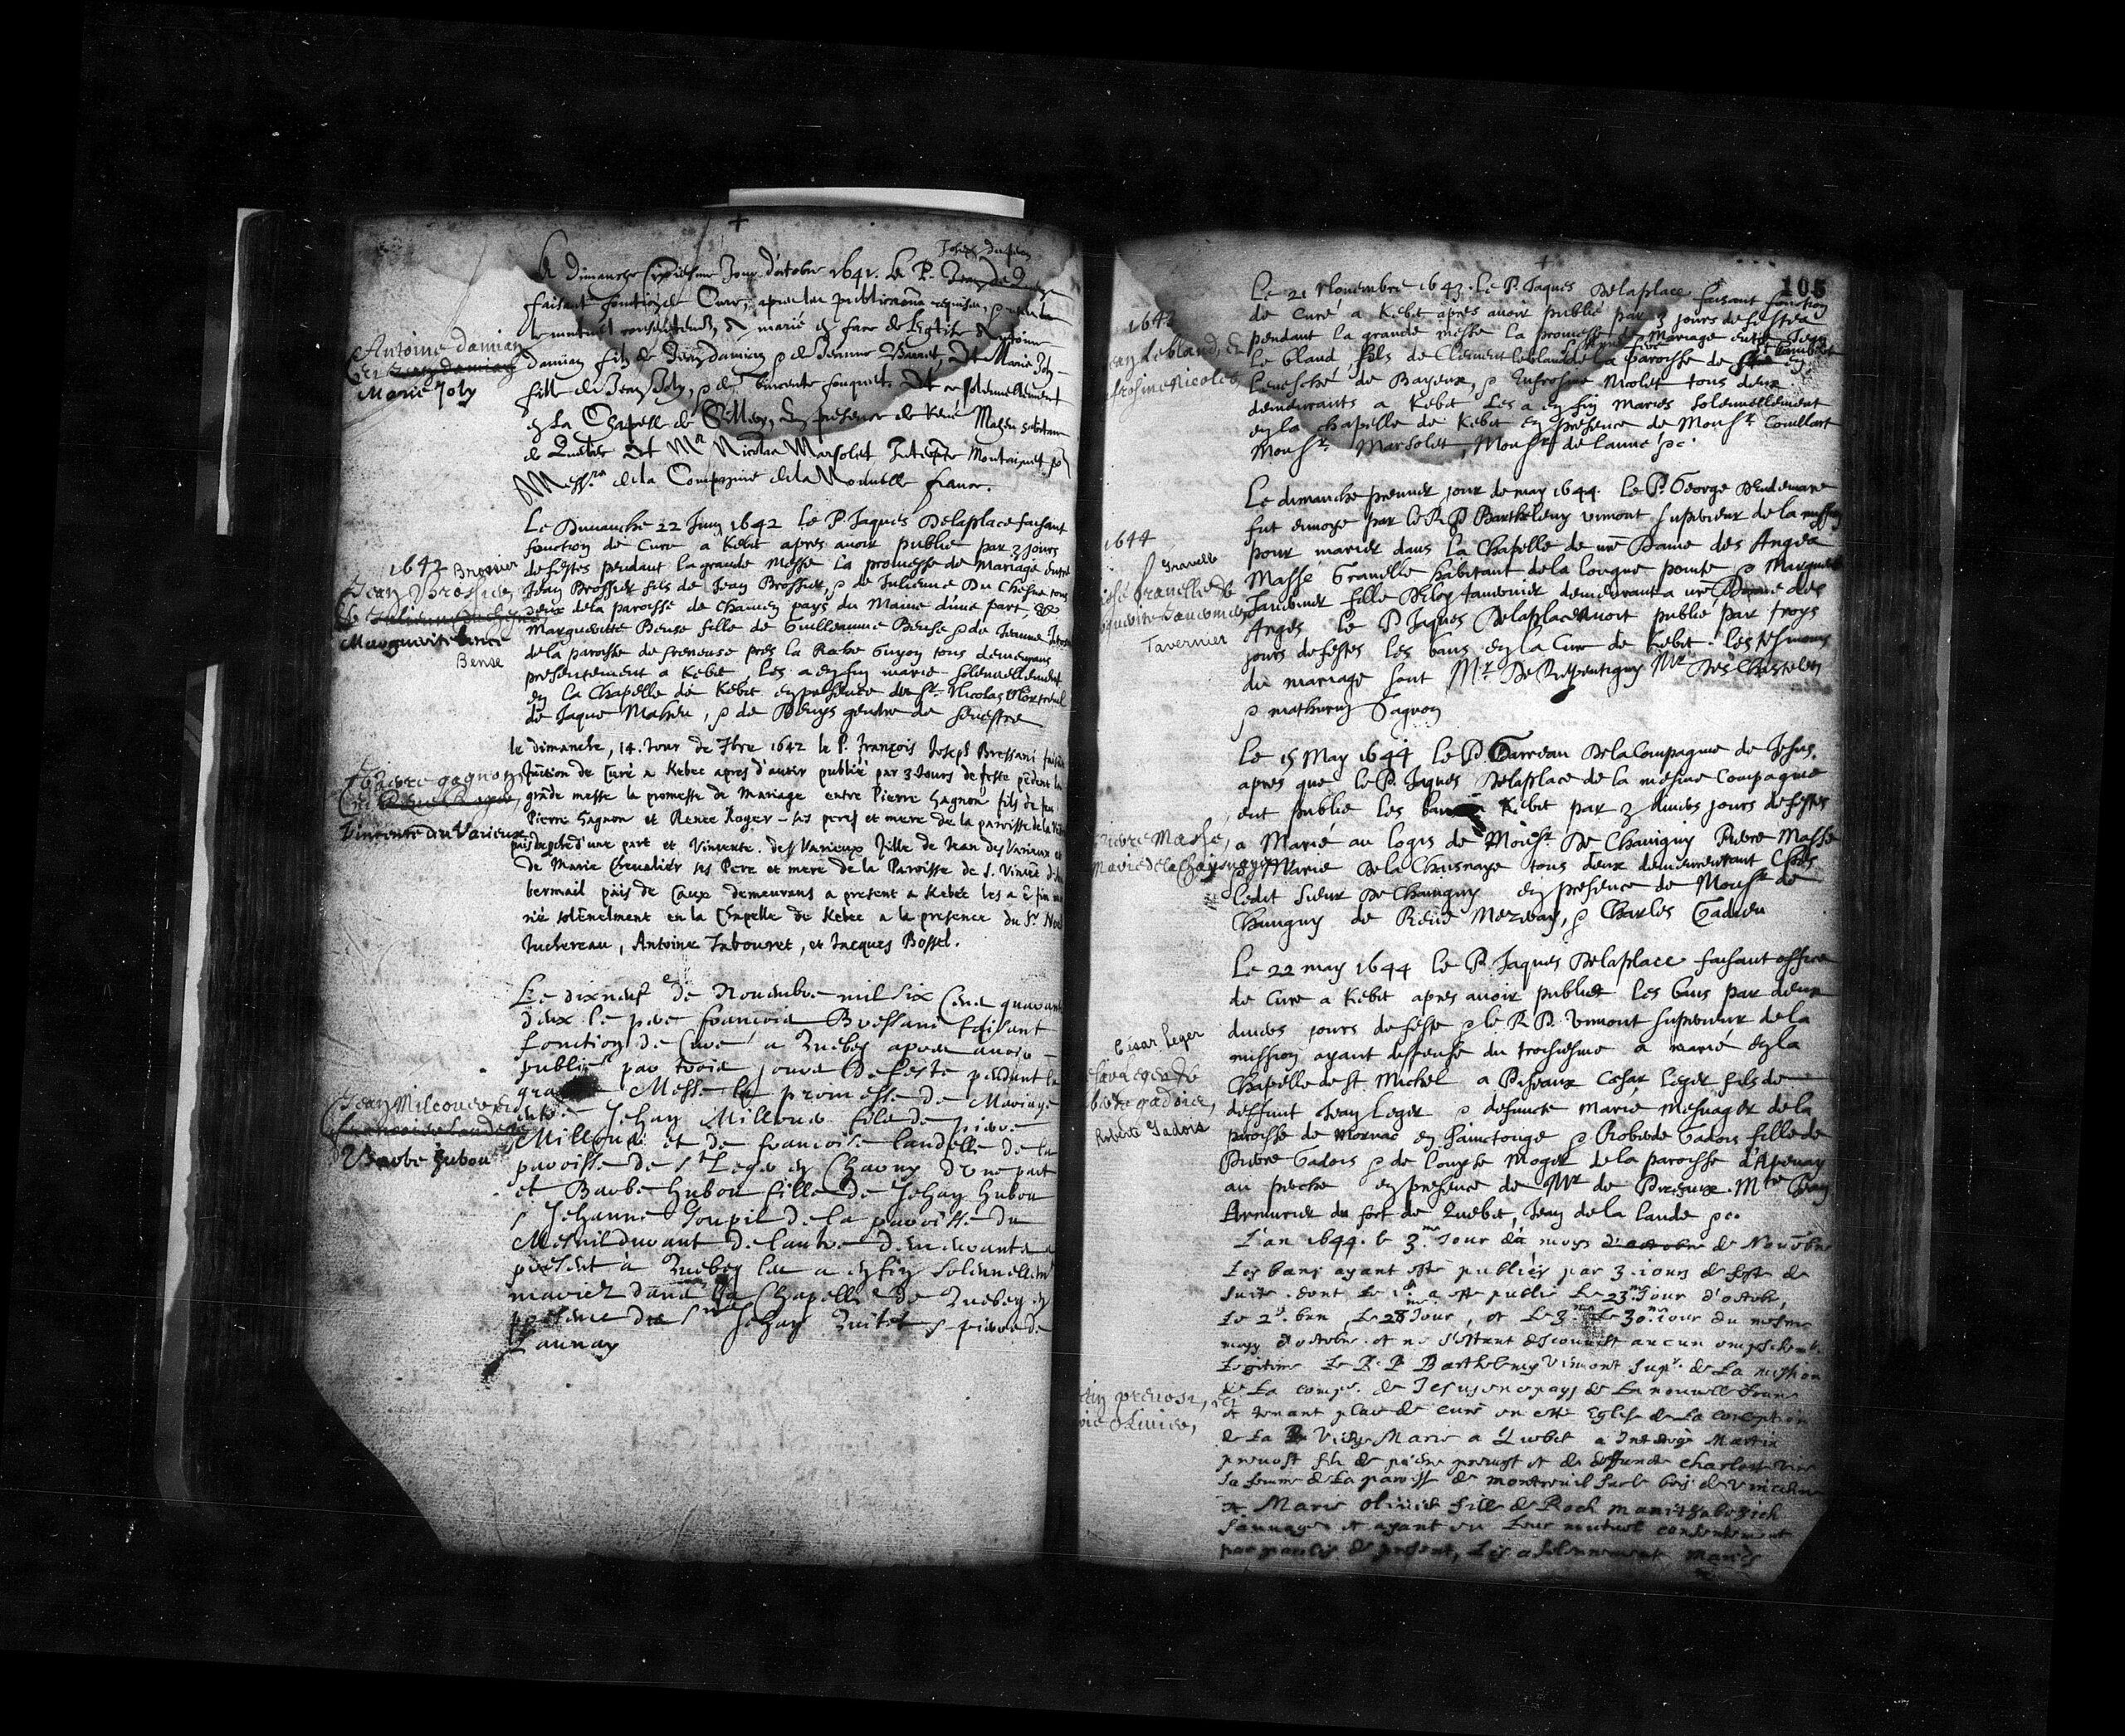 Joseph du peron
Le dimanche sixiesme Jour d'octobre 1641. le P. Jean de Quen
faisant fonction de Curé, apres les publications requises,
le mutuel consentement, a marié en face de l'Eglise Antoine
Antoine damian
Et Jean damian
Marie Joly
damian fils de Jean damian, & de Jeanne Et Marie Joly
fille de Jean Joly, & de Vincente fouquet, Et ce solennellement
en La Chapelle de Sillery, En presence de René Maheu habitant
de Quebec Et Mr Nicolas Marsolet Interprete Montaignet po
Messrs de la Compagnie de la Nouvelle france.
Le Dimanche 22 Juin 1642 Le P. Jaques Delaplace faisant
fonction de Curé a Kebec apres avoir publié par 3 jours
1642 Brossier
Jean Brossier
Et Julienne du chesne
Marguerite bence
Bense
de festes pendant la grande Messe la promesse de Mariage entre
Jean Brossier fils de Jean Brossier, & de Julienne Du Chesne tous
deux de la paroisse de pays du Maine d'une part, &
Marguerite Bense fille de Guilleaume Bense & de Jeanne
de la paroisse de freneuse pres la Roche Guyon tous demeurans
presentement a Kebec les a enfin marié solennellement
en La Chapelle de Kebec en presence de Sr Nicolas Marsolet
de Jaque Maheu, & de Denys gendre de Senestre
le dimanche, 14. Jour de 7bre 1642 le P. François Joseph Bressani faisant
Pierre gagnon
Vincente du Varieux
function de Curé a Kebec apres d'avoir publié par 3 Jours de feste pēdent la
grāde messe la promesse de Mariage entre Pierre Gagnon fils de feu
Pierre Gagnon et Renee Roger ses pere et mere de la paroisse de la
d'une part et Vincente des Varieux fille de Jean des Varieux et
de Marie Chevalier ses Pere et mere de la Paroisse de S. Vincēt d'Au
bermail païs de Caux demeurans a present a Kebec les a ē fin ma
rié solēnelment en la Chapelle de Kebec a la presence du Sr Noel
Juchereau, Antoine Tabouret, et Jacques Bossel.
Le dixneuf de Novembre mil six Cens quarante
deux le pere francois Bressani faisant
fonction de Curé a Quebeq apres avoir
publié par trois jours de feste pendant la
Messe la promesse de Mariage
Jean Milcouer et
francoise landelle
Barbe hubou
entre Jehan Millouer fils de pierre
Millouer et de francoise landelle de la
paroisse de St Leger en Charny d'une part
et Barbe hubou fille de Jehan hubou
& Jehanne Goupil de la paroisse du
Mesnil durant de lautre demeurants a
present à Quebeq les a enfin solennellemt
mariez dans la Chapelle de Quebeq en
presence du Sr Jehan Guitet & pierre de
Launay
105
1643
Jean lebland, Et
frosine Nicolet
Le 21 Novembre 1643. Le P. Jaques Delaplace faisant fonction
de Curé a Kebec apres avoir publié par 3 jours de festes
pendant la grande messe la promesse de Mariage entre Jean
le bland fils de Clement lebland de la paroisse de St Lambert
levesché de Bayeux, & Eufrosine Nicolet tous deux
demeurants a Kebec les a enfin mariés solennellement
en la chapelle de Kebec en presence de Monsr Couillart
Monsr Marsolet, Monsr de launé &c.
1644
Gravelle
Massé Gravelle Et
Marguerite Tauernier
Tavernier
Le dimanche premier jour de may 1644. Le P. George Deudemare
fut envoyé par le R. P. Barthelemy vimont superieur de la mission
pour marier dans la Chapelle de nre Dame des Anges
Massé Gravelle habitant de la longue pointe & Marguerite
Tauernier fille d'Eloy tauernier demeurant a nre Dame des
Anges Le P. Jaques Delaplace avoit publié par troys
jours de festes les bans en la Cure de Kebec. les tesmoins
du mariage sont Mr De Repentigny Mr Des Chastelets
& mathurin Gagnon
Le 15 May 1644 Le P. Garreau De la Compagnie de Jesus.
apres que le P. Jaques Delaplace de la mesme Compagnie
eut publié les bans a Kebec par 3 divers jours de festes
Pierre Masse,
Marie de la Chaisnaye
a Marié au logis de Monsr De Chauigny Pierre Masse
& Marie De la Chaisnaye tous deux demeurant Chés
ledit Sieur De Chauigny en presence de Monsr de
Chauigny de René Mezeray, & Charles Cadieu
Le 22 may 1644 Le P. Jaques Delaplace faisant office
de Curé a Kebec apres avoir publié les bans par deux
divers jours de feste & le R. P. Vimont superieur de la
Cesar Leger
roberte gadois,
Roberte Gadois
mission ayant dispensé du troisiesme a marié en la
Chapelle de St Michel a Piseaux Cesar Leger fils de
deffunt Jean Leger & defuncte Marie Mesnager de la
paroisse de Mornac en Sainctonge & Roberde Gadois fille de
Pierre Gadois & de Louyse Moger de la paroisse d'Apenay
au perche en presence de Mr de Piseaux. Mre Jean
Armurier du fort de Quebec, Jean de la lande &c.
L'an 1644. le 3.me Jour du moys d'octobre de Novēbre
Les bans ayant esté publiés par 3. iours de feste de
suitte. dont le 1er a esté publié Le 23me Jour d'octobre,
Le 2d. ban, Le 28 Jour, et Le 3me Le 30.me Jour du mesme
moys d'octobre. et ne s'estant descouvert aucun empeschemt.
legitime. Le R. P. Barthelemy Vimont supr. de La mission
tin prevost, et
rie oliuier,
de La compe. de Jesus en ce pays de La nouvelle france
et tenant place de curé en cette Eglise de La conception
de La Vierge Marie a Quebec a Interrogé Martin
prevost fils de pierre prevost et de deffuncte Charlotte
sa femme de La paroisse de montreuil sur le bois de Vincennes
et Marie oliuier fille de Roch manitouabewich
sauuage. et ayant eu Leur mutuel consentement
par parolles de present, Les a solennement mariés